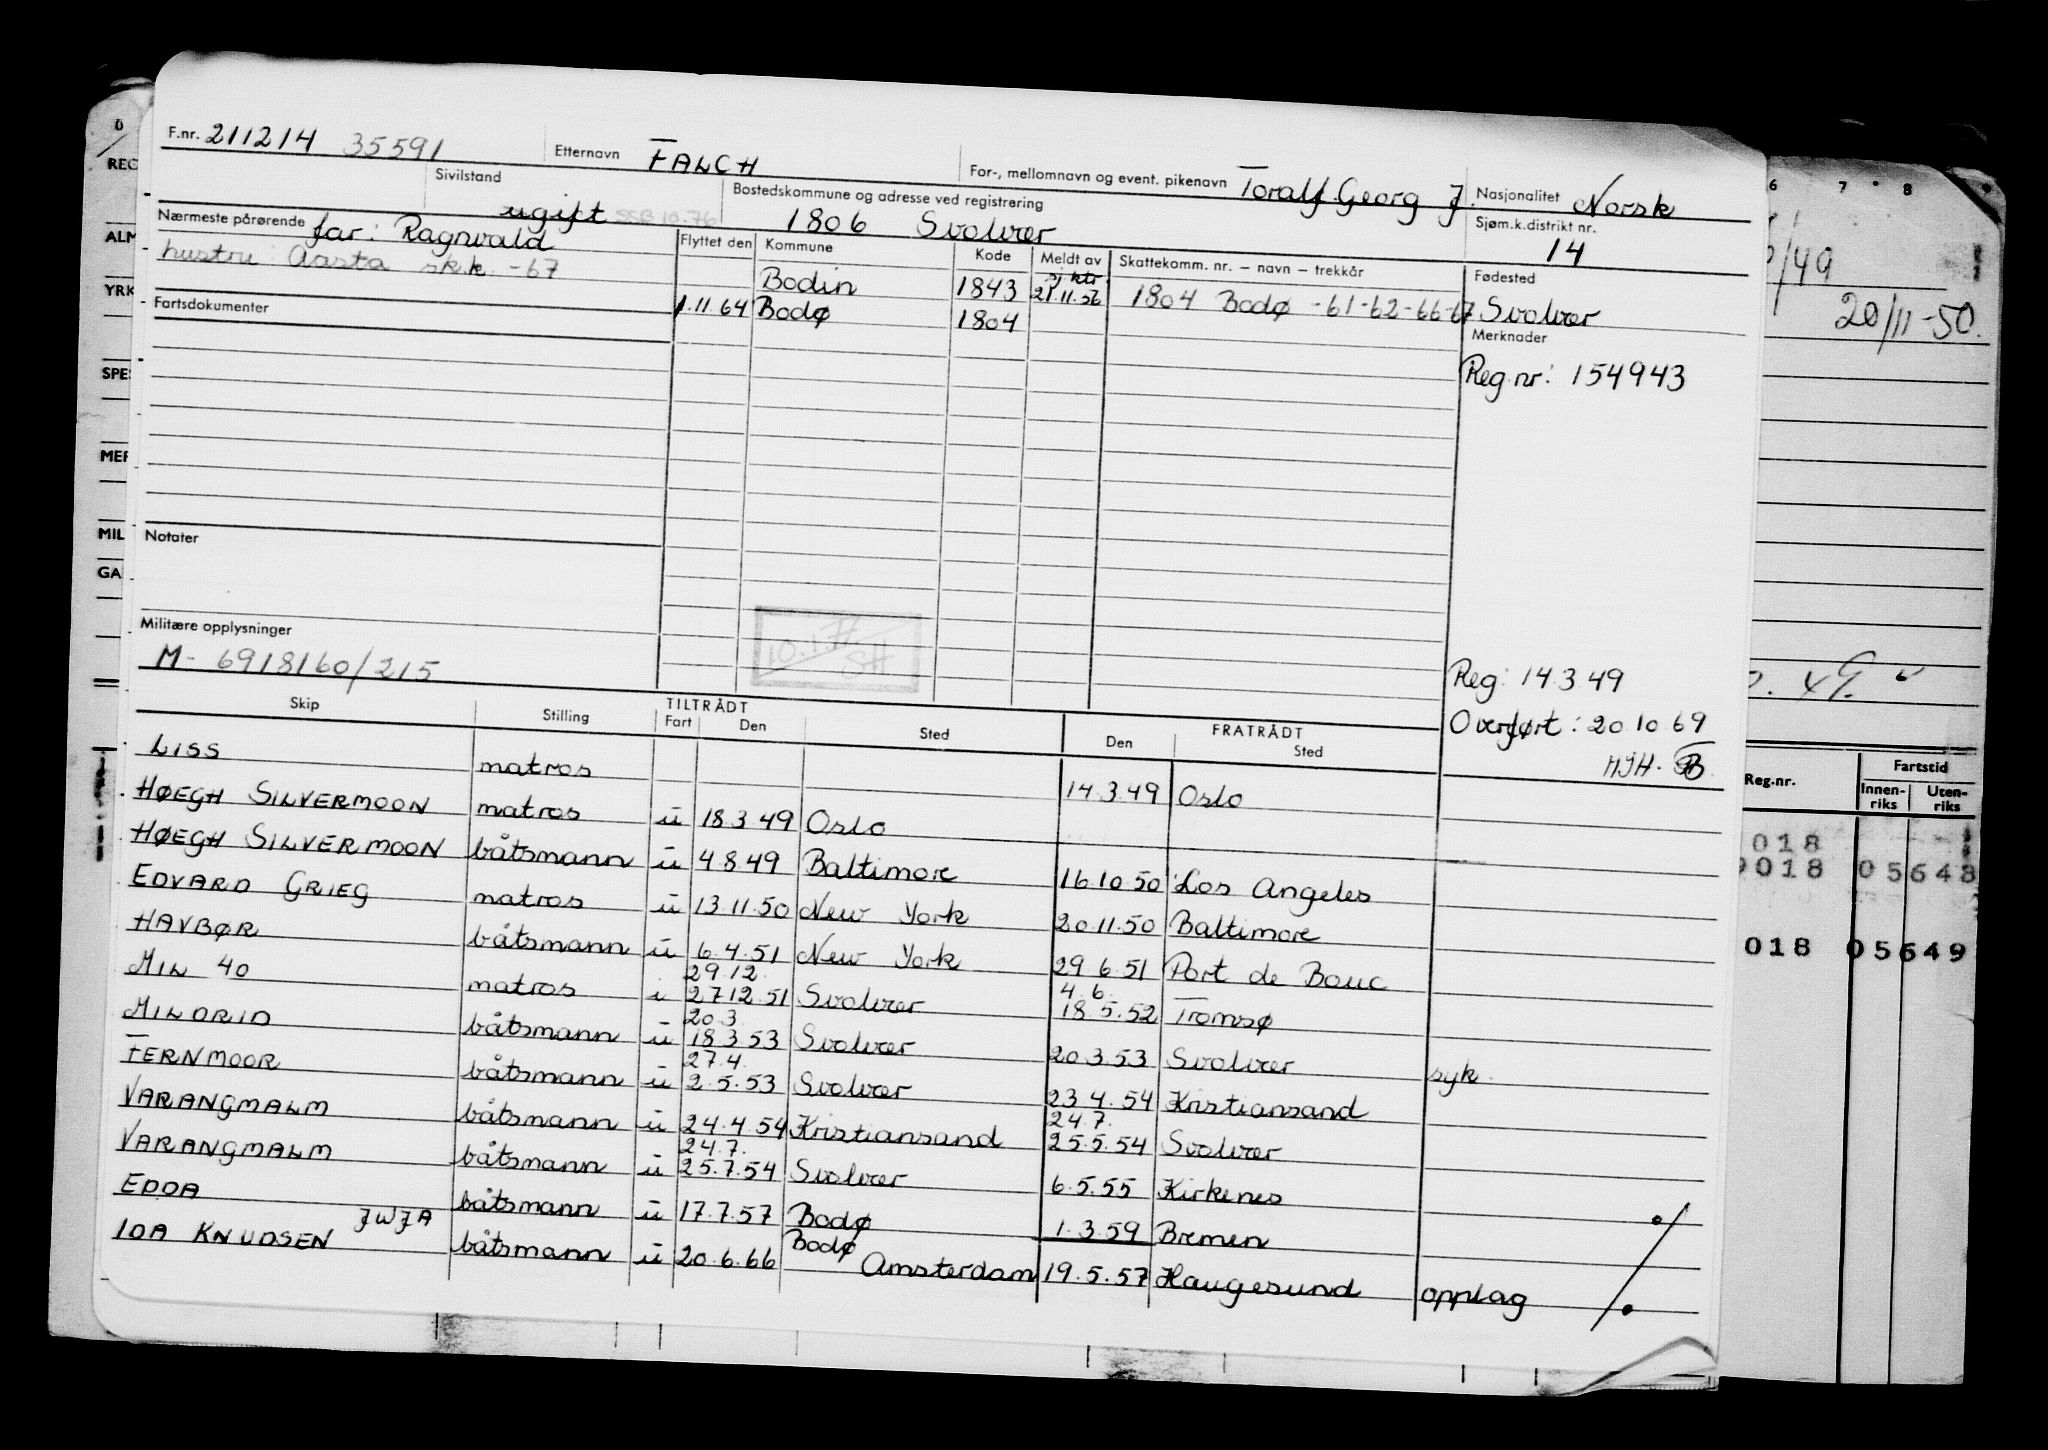 F.nr. 211214 35591 Etternavn FALCH For-, mellomnavn og event. pikenavn Toralf Georg J. Nasjonalitet Norsk
Sivilstand ugift SSB 10.76 Bostedskommune og adresse ved registrering 1806 Svolvær Sjøm.k.distrikt nr. 14
Nærmeste pårørende far: Ragnvald
hustru: Aasta sk.k. -67
Flyttet den Kommune Kode Meldt av Skattekomm. nr. – navn – trekkår Fødested
Bodin 1843 sj.ktr. 21.11.56 1804 Bodø -61-62-66-67 Svolvær
Fartsdokumenter 1.11.64 Bodø 1804
Merknader
Reg.nr: 154943
Notater
Militære opplysninger
M- 6918160/215
10.1.77
SH
Reg: 14.3.49
Overført: 20.10.69
MJH.
Skip Stilling TILTRÅDT Fart Den Sted FRATRÅDT Den Sted
LISS matros 14.3.49 Oslo
HØEGH SILVERMOON matros u 18.3.49 Oslo
HØEGH SILVERMOON båtsmann u 4.8.49 Baltimore 16.10.50 Los Angeles
EDVARD GRIEG matros u 13.11.50 New York 20.11.50 Baltimore
HAVBØR båtsmann u 6.4.51 New York 29.6.51 Port de Bouc
29.12. 4.6.
MIL 40 matros i 27.12.51 Svolvær 18.5.52 Tromsø
20.3.
MILDRID båtsmann u 18.3.53 Svolvær 20.3.53 Svolvær syk
27.4.
FERNMOOR båtsmann u 2.5.53 Svolvær 23.4.54 Kristiansand
24.7.
VARANGMALM båtsmann u 24.4.54 Kristiansand 25.5.54 Svolvær
24.7.
VARANGMALM båtsmann u 25.7.54 Svolvær 6.5.55 Kirkenes
EDDA båtsmann u 17.7.57 Bodø 1.3.59 Bremen
IDA KNUDSEN JWJA båtsmann u 20.6.66 Bodø Amsterdam 19.5.57 Haugesund opplag
REG
ALM
YRK
SPES
MER
MIL
GA
6 7 8
/49
20/11-50.
49.
Reg.nr. Fartstid
Innen-riks Uten-riks
018
9018 05648
018 05649